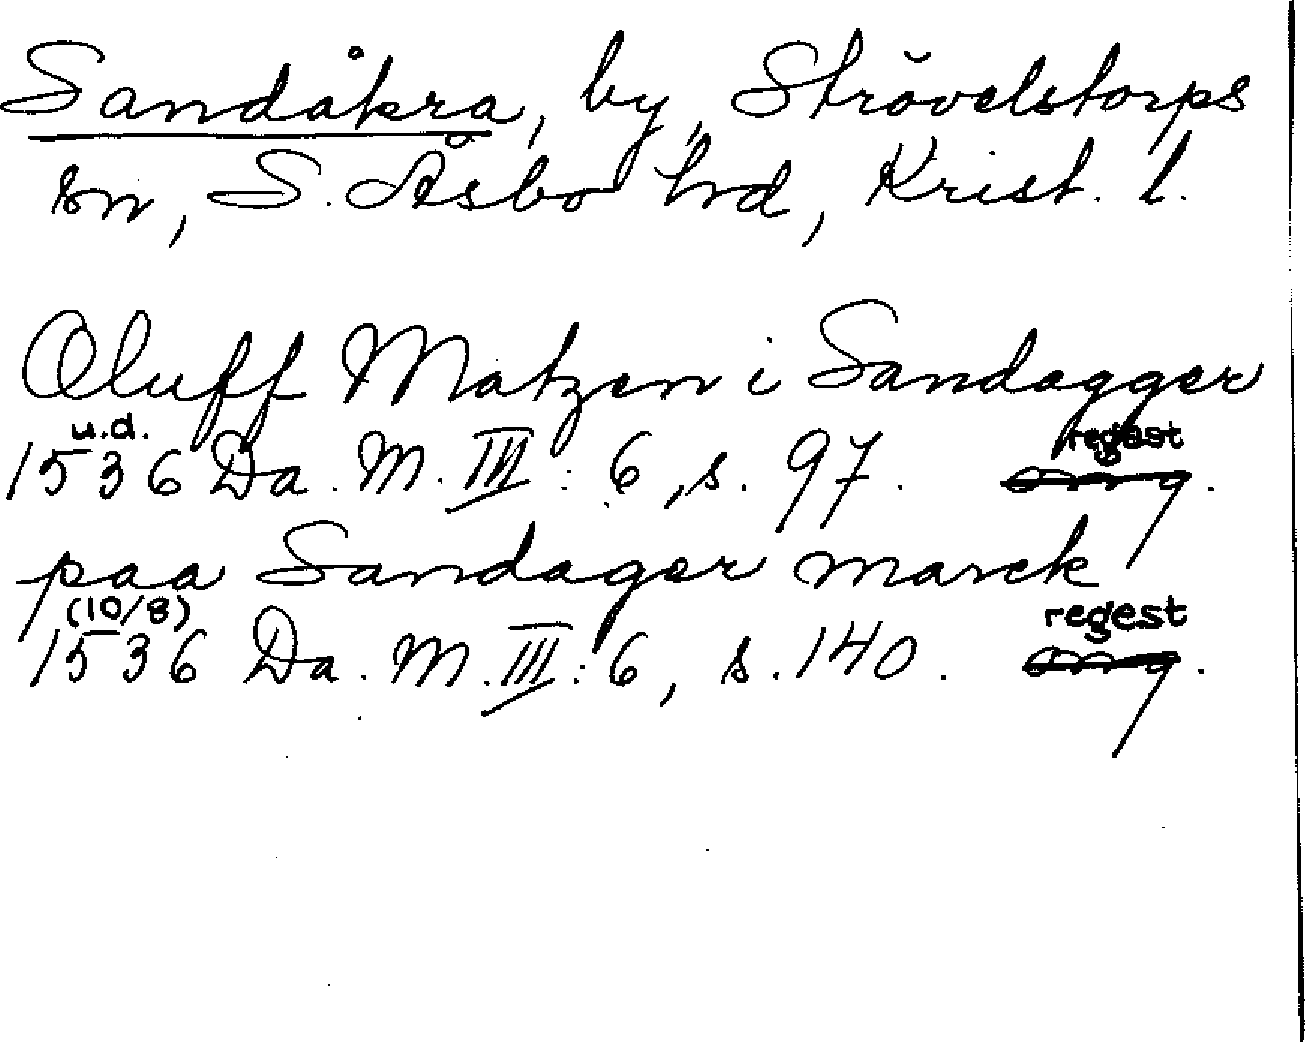 Sandåkra, by, Strövelstorps
sn, S. Åsbo hrd, Krist. l.
Oluff Matzen i Sandagger
u.d.
regest
1536 Da. M. III: 6, s. 97. org.
paa Sandager marck
(10/8)
regest
1536 Da. M. III: 6, s. 140. org.